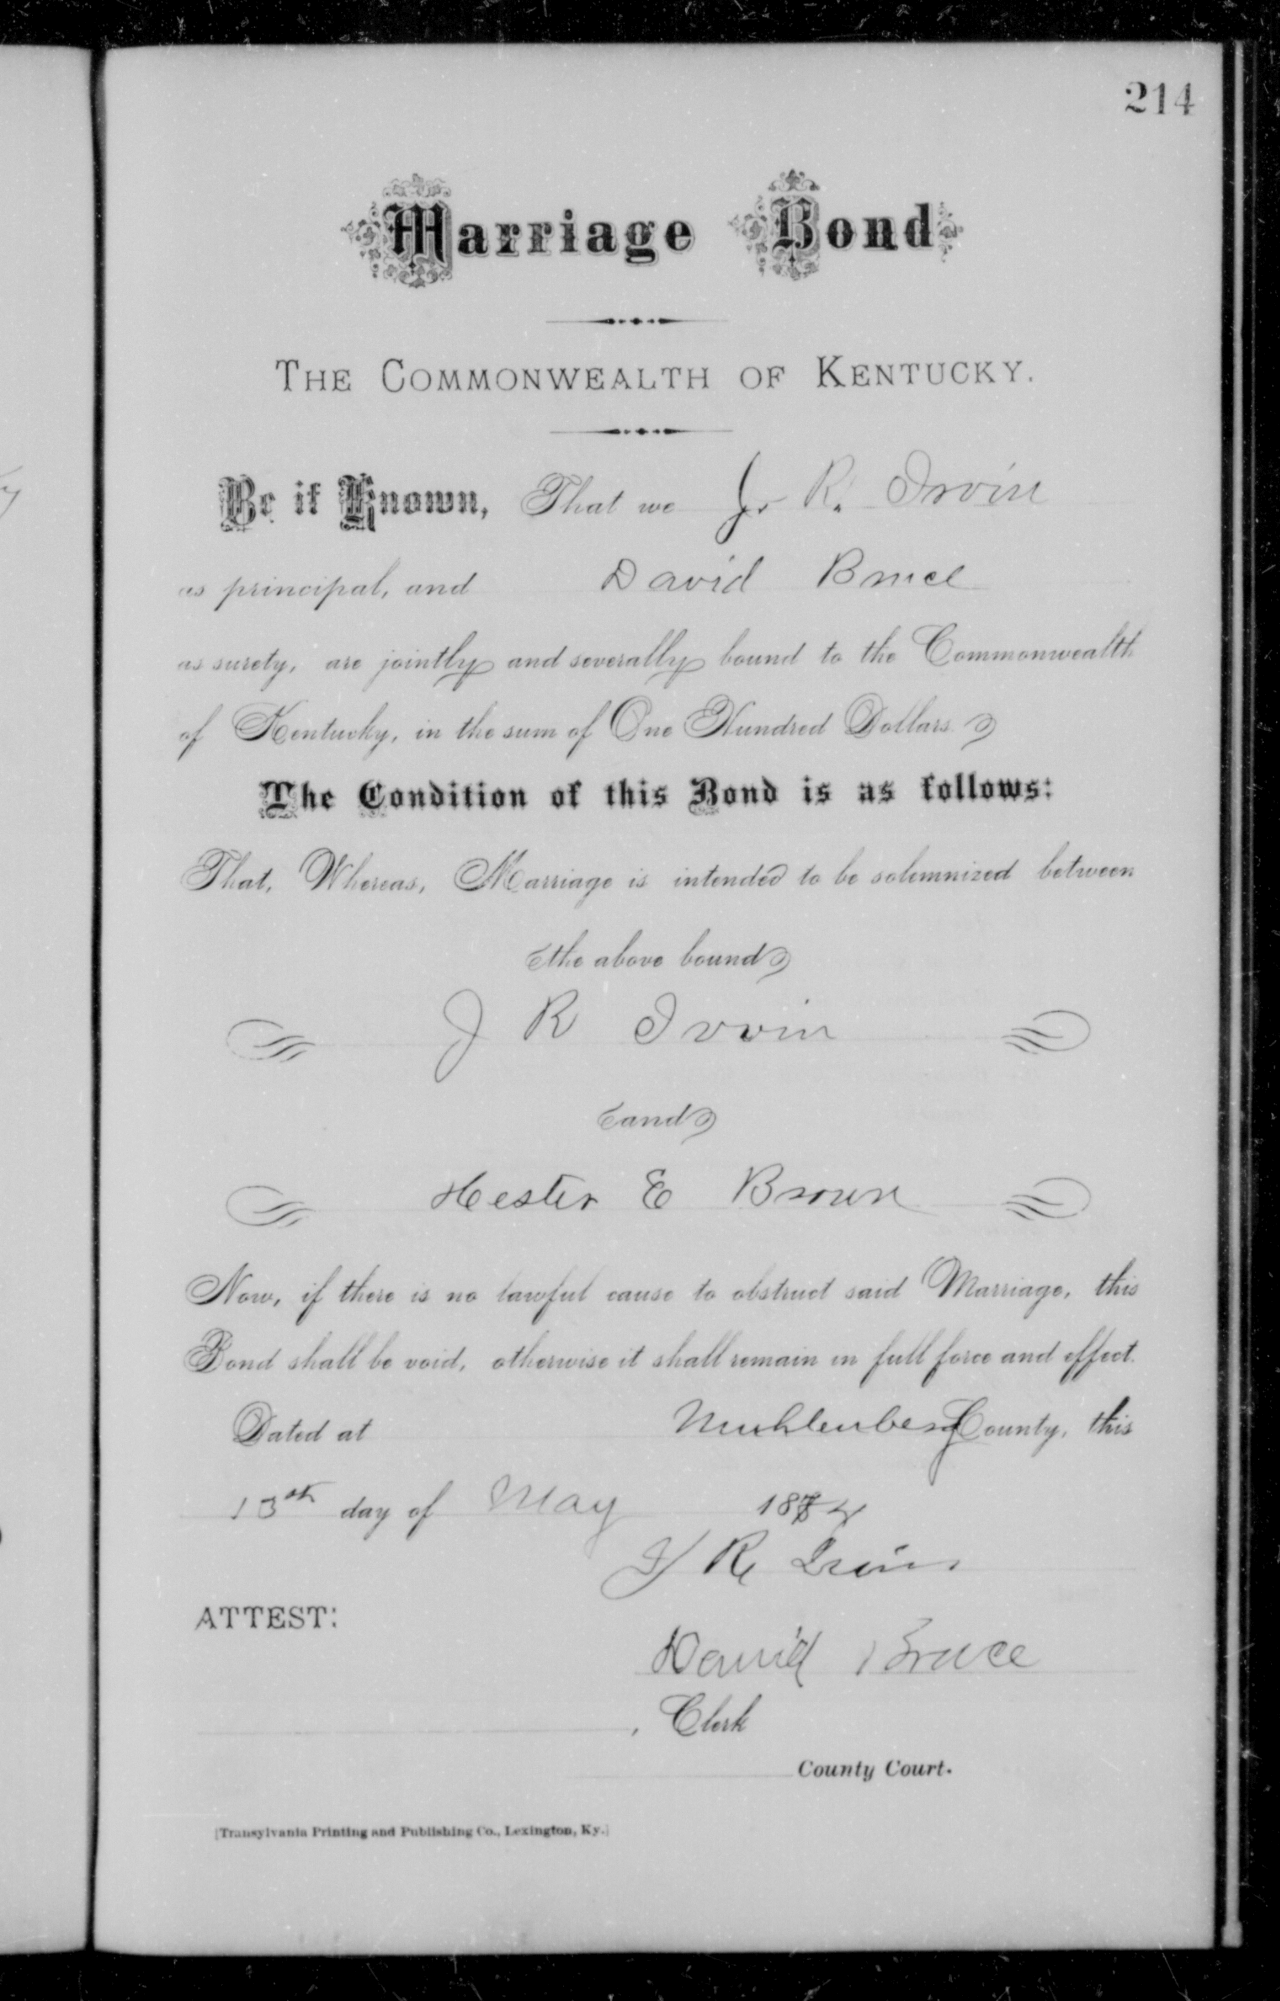 214
Marriage Bond
THE COMMONWEALTH OF KENTUCKY.
Be it Known, That we J. R. Irvin
as principal, and David Bruce
as surety, are jointly and severally bound to the Commonwealth
of Kentucky, in the sum of One Hundred Dollars.
The Condition of this Bond is as follows:
That, Whereas, Marriage is intended to be solemnized between
the above bound
J R Irvin
and
Hester E Brown
Now, if there is no lawful cause to obstruct said Marriage, this
Bond shall be void, otherwise it shall remain in full force and effect.
Dated at Muhlenberg County, this
13th day of May 1884
J R Irvin
ATTEST:
David Bruce
, Clerk
County Court.
[Transylvania Printing and Publishing Co., Lexington, Ky.]